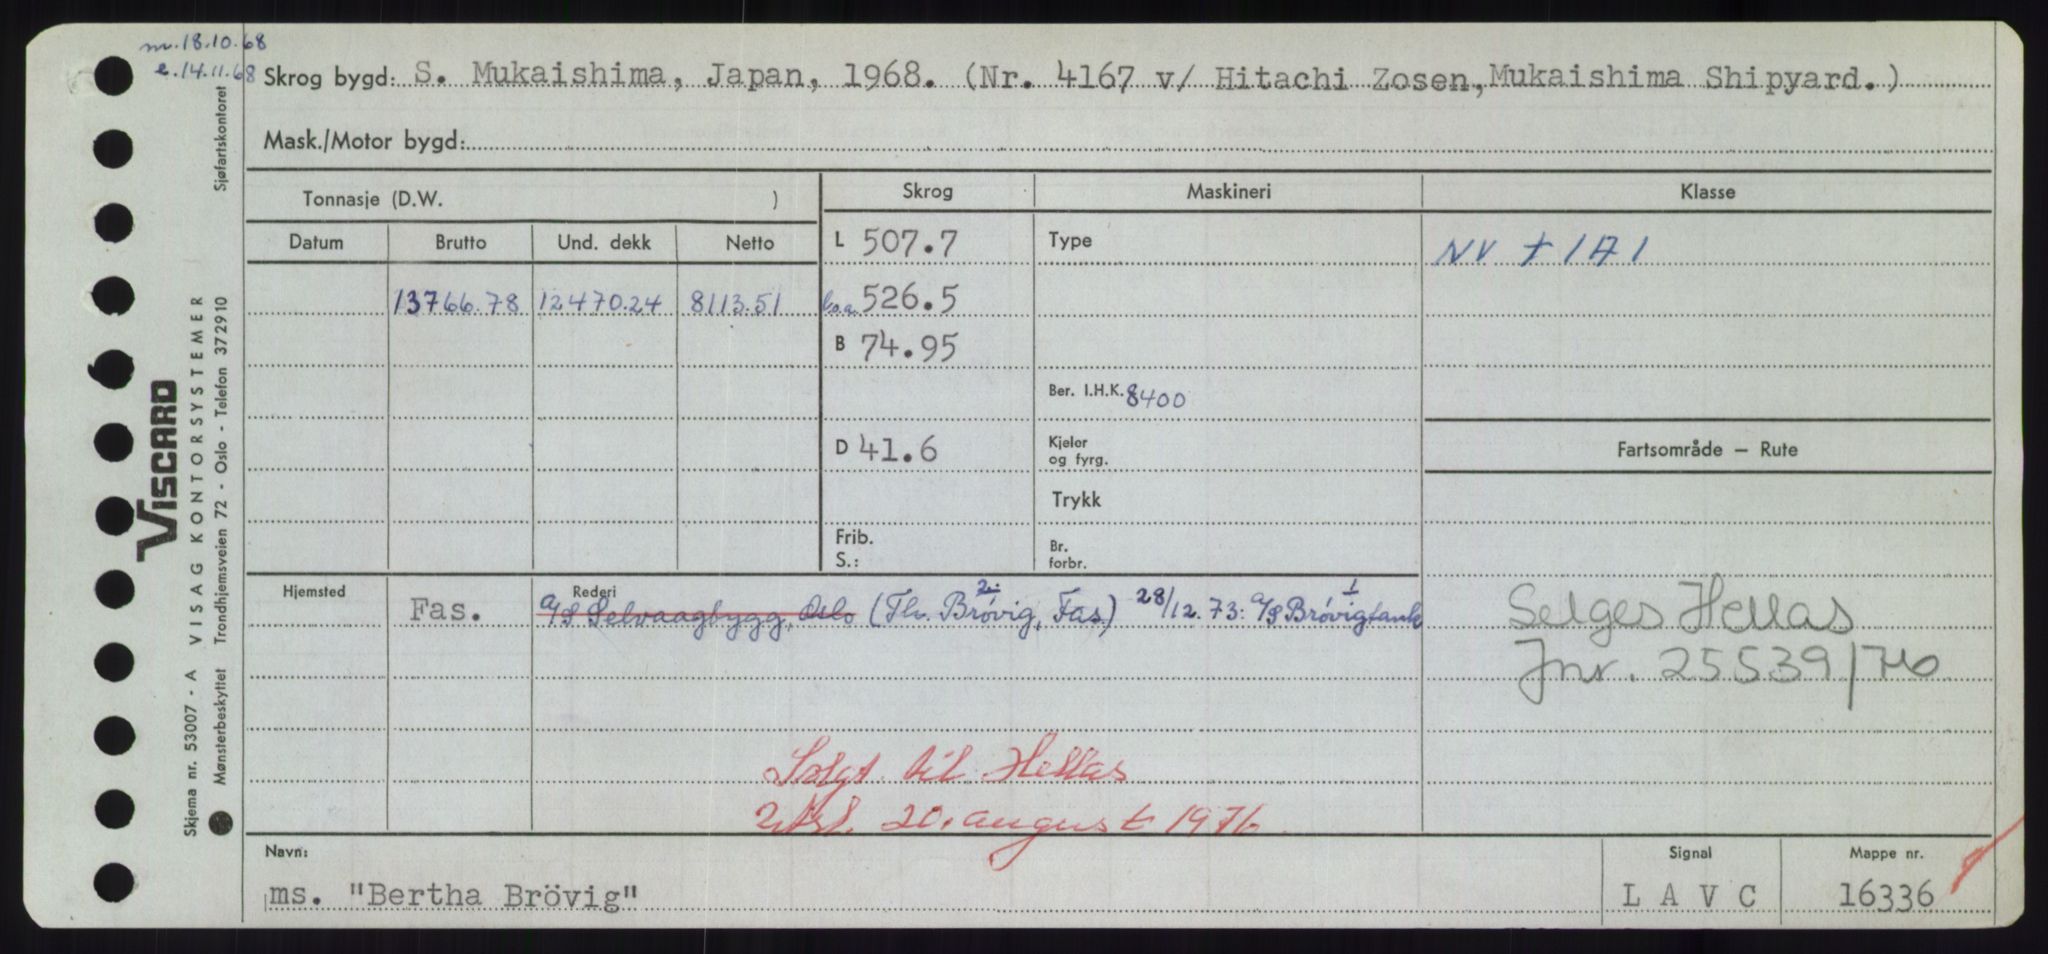 m. 18.10.68
e. 14.11.68
Skrog bygd: S. Mukaishima, Japan, 1968. (Nr. 4167 v/ Hitachi Zosen, Mukaishima Shipyard.)
Mask./Motor bygd:
Tonnasje (D.W. )
Skrog
Maskineri
Klasse
Datum
Brutto
Und. dekk
Netto
L 507.7
Type
NV + 1A1
13766.78
12470.24
8113.51
l.o.a. 526.5
B 74.95
Ber. I.H.K. 8400
D 41.6
Kjeler
og fyrg.
Fartsområde — Rute
Trykk
Frib.
S.:
Br.
forbr.
Hjemsted
Rederi
Fas.
A/S Selvaagbygg, Oslo (Th. Brøvig, Fas.) 28/12.73: A/S Brøvigtank
2.
1
Selges Hellas
Jnr. 25539/76
Solgt til Hellas
20. august 1976
Navn:
ms. "Bertha Brövig"
Signal
L A V C
Mappe nr.
16336
VISCARD
Skjema nr. 53007 - A VISAG KONTORSYSTEMER
Mønsterbeskyttet Trondhjemsveien 72 - Oslo - Telefon 372910
Sjøfartskontoret